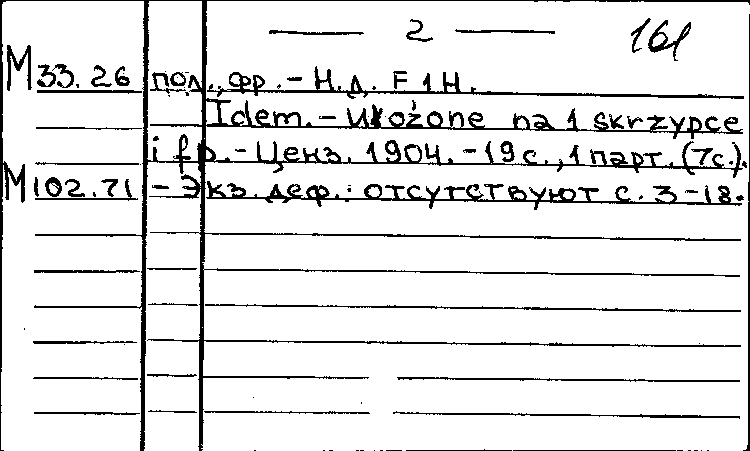 — 2 — 161
M 33.26 пол., фр. – Н.д. F 1 H.
Idem. – Ułożone na 1 skrzypce
i fp. – Ценз. 1904. – 19 с., 1 парт. (7с.).
M 102.71 – Экз. деф.: отсутствуют с. 3–18.